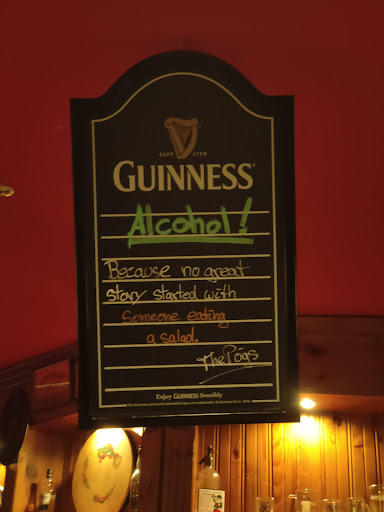 ESTD 1759
GUINNESS
Alcohol!
Because no great
story started with
Someone eating
a salad.
The Pógs
Enjoy GUINNESS Sensibly